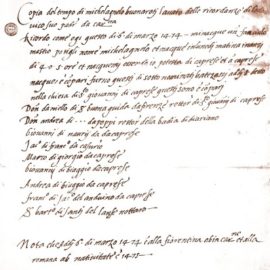 Copia del tempo di michelagniolo buonaroti levato dalle ricordanze di lodo
vico suo padre da
Ricordo come ogi questo dì 6 di marzo 1474 mi nacque un fanciullo
mastio pongli nome michelagnolo et nacque inlunedj matina inanzj
dì 4 o 5 ore et nacquemj essendo io potestà di caprese et a caprese
nacque e conpari furno questi di sotto nominati batezossi addj 8 detto
nella chiesa di sto giovannj di caprese questi sono e conpari
Don daniello di ser buona guida da firenze rettor di sto giovannj di caprese
Don andrea di poppi rettor della badia di diariano
Giovannj di nannj da caprese
Jaco di franco da casurio
Marco di giorgio da caprese
Giovannj di biagio da caprese
Andrea di biagio da caprese
Franco di Jaco del anduino da caprese
Ser bartolomeo di santj del lanse nottaro
Nota che addj 6 di marzo 1474 è alla fiorentina ab incarne et alla
romana ab nativitate è 1475